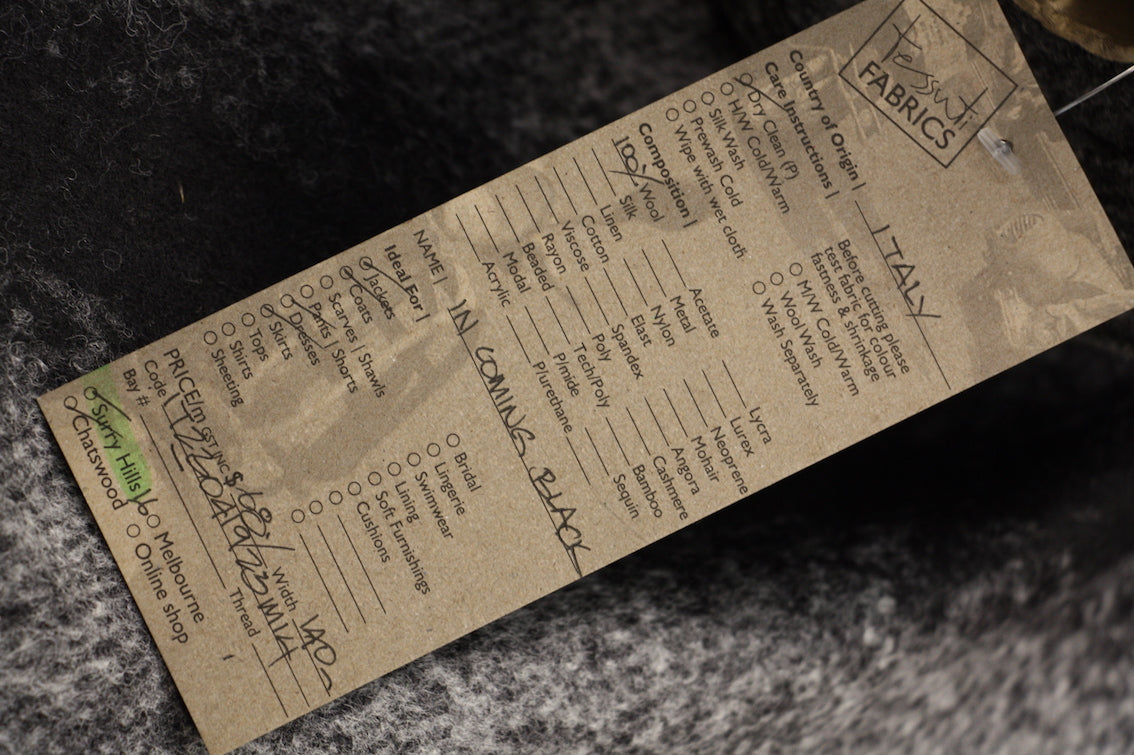 tessuti
FABRICS
Country of Origin | ITALY
Care Instructions |
Dry Clean (P)
H/W Cold/Warm
Silk Wash
Prewash Cold
Wipe with wet cloth
Before cutting please
test fabric for colour
fastness & shrinkage
M/W Cold/Warm
Wool Wash
Wash Separately
Composition |
100% Wool
Silk
Linen
Cotton
Viscose
Rayon
Beaded
Modal
Acrylic
Acetate
Metal
Nylon
Elast
Spandex
Poly
Tech/Poly
P/mide
P/urethane
Lycra
Lurex
Neoprene
Mohair
Angora
Cashmere
Bamboo
Sequin
NAME | IN COMING BLACK
Ideal For |
Jackets
Coats
Scarves | Shawls
Pants | Shorts
Dresses
Skirts
Tops
Shirts
Sheeting
Bridal
Lingerie
Swimwear
Lining
Soft Furnishings
Cushions
PRICE/m GST INC $ Width 140
Code Thread
Bay # 16
Surry Hills
Chatswood
Melbourne
Online shop